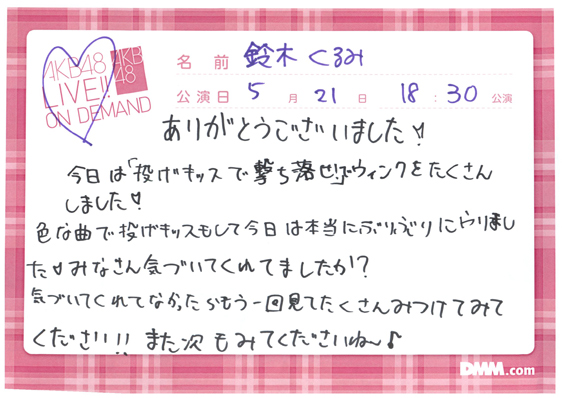 AKB48
LIVE!!
ON DEMAND
AKB
48
名前 鈴木くるみ
公演日 5月21日 18:30公演
ありがとうございました♡
今日は「投げキッスで撃ち落せ!」でウィンクをたくさん
しました♡
色な曲で投げキッスもして今日は本当にぶりぶりにやりまし
た♡みなさん気づいてくれてましたか!?
気づいてくれてなかったらもう一回見てたくさんみつけてみて
ください!! また次もみてくださいね〜♪
DMM.com